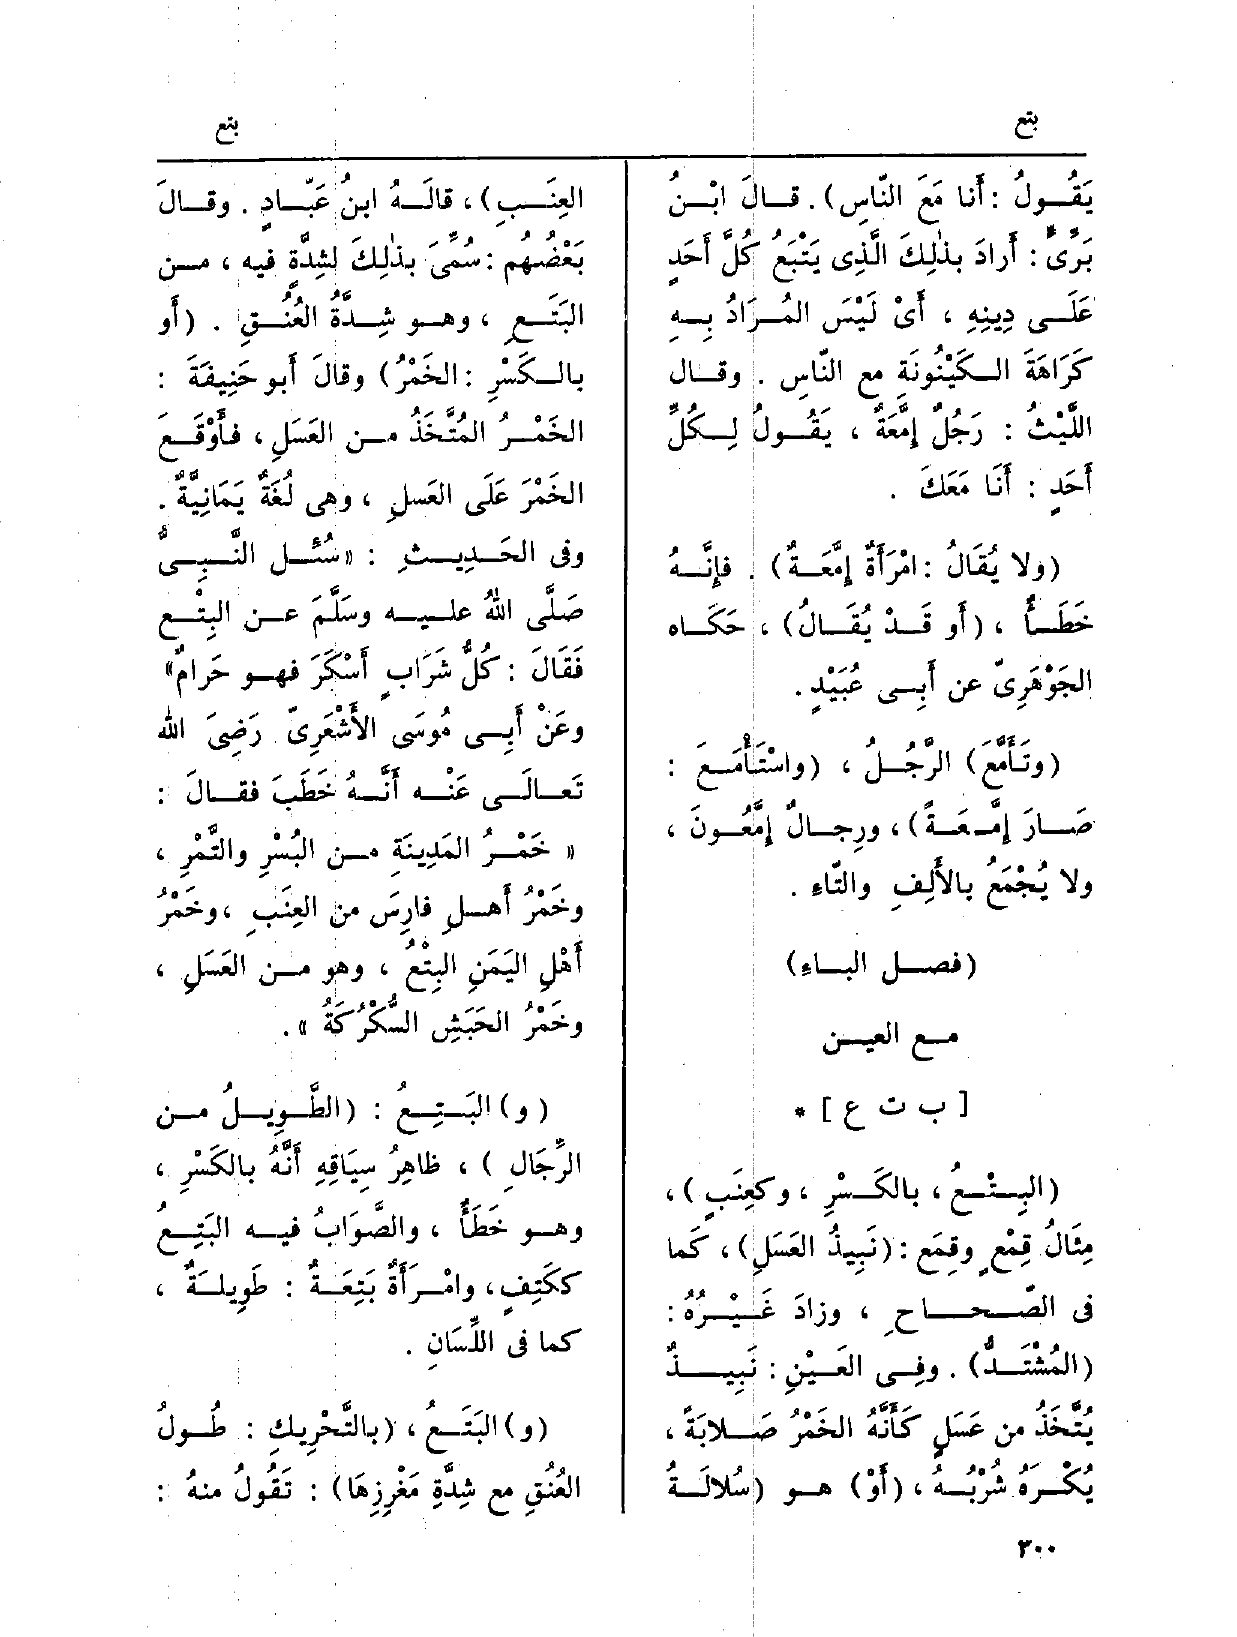 بتع
بتع
يَقُولُ : أَنا مَعَ النّاسِ). قالَ ابْنُ
بَرِّىٍّ : أَرادَ بذٰلِكَ الَّذِى يَتْبَعُ كُلَّ أَحَدٍ
عَلَى دِينِهِ ، أَىْ لَيْسَ المُرَادُ بِهِ
كَرَاهَةَ الكَيْنُونَةِ مع النّاسِ . وقال
اللَّيْثُ : رَجُلٌ إِمَّعَةٌ ، يَقُولُ لِكُلِّ
أَحَدٍ : أَنَا مَعَكَ .
(ولا يُقَالُ : امْرَأَةٌ إِمَّعَةٌ) . فإِنَّهُ
خَطَأٌ ، (أَو قَدْ يُقَالُ) ، حَكَاه
الجَوْهَرِىّ عن أَبِى عُبَيْدٍ .
(وتَأَمَّعَ) الرَّجُلُ ، (واسْتَأْمَعَ :
صَارَ إِمَّعَةً) ، ورِجالٌ إِمَّعُونَ ،
ولا يُجْمَعُ بالأَلِفِ والتّاءِ .
(فصل الباء)
مع العين
[ ب ت ع ] *
(البِتْعُ ، بالكَسْرِ ، وكعِنَبٍ) ،
مِثَالُ قِمْعٍ وقِمَعٍ : (نَبِيذُ العَسَلِ) ، كَما
فى الصّحاحِ ، وزادَ غَيْرُهُ :
(المُشْتَدُّ) . وفِى العَيْنِ : نَبِيذٌ
يُتَّخَذُ من عَسَلٍ كَأَنَّهُ الخَمْرُ صَلابَةً ،
يُكْرَهُ شُرْبُهُ ، (أَوْ) هو (سُلالَةُ
العِنَبِ) ، قالَهُ ابنُ عَبّادٍ . وقالَ
بَعْضُهم : سُمِّىَ بذٰلِكَ لشِدَّةٍ فيه ، من
البَتَعِ ، وهو شِدَّةُ العُنُقِ . (أَو
بالكَسْرِ : الخَمْرُ) وقالَ أَبو حَنِيفَةَ :
الخَمْرُ المُتَّخَذُ من العَسَلِ ، فأَوْقَعَ
الخَمْرَ عَلَى العَسلِ ، وهى لُغَةٌ يَمَانِيَّةٌ .
وفى الحَدِيثِ : «سُئِل النَّبِىُّ
صَلَّى اللهُ عليه وسَلَّمَ عن البِتْعِ
فَقَالَ : كُلُّ شَرَابٍ أَسْكَرَ فهو حَرامٌ»
وعَنْ أَبِى مُوسَى الأَشْعَرِىّ رَضِىَ الله
تَعالَى عَنْه أَنَّهُ خَطَبَ فقالَ :
« خَمْرُ المَدِينَةِ من البُسْرِ والتَّمْرِ ،
وخَمْرُ أَهلِ فارِسَ من العِنَبِ ، وخَمْرُ
أَهْلِ اليَمَنِ البِتْعُ ، وهو من العَسَلِ ،
وخَمْرُ الحَبَشِ السُّكُرْكَةُ » .
(و) البَتِعُ : (الطَّوِيلُ من
الرِّجَالِ ) ، ظاهِرُ سِيَاقِهِ أَنَّهُ بالكَسْرِ ،
وهو خَطَأٌ ، والصَّوَابُ فيه البَتِعُ
ككَتِفٍ ، وامْرَأَةٌ بَتِعَةٌ : طَوِيلَةٌ ،
كما فى اللِّسَانِ .
(و) البَتَعُ ، (بالتَّحْرِيكِ : طُولُ
العُنُقِ مع شِدَّةِ مَغْرِزِهَا) : تَقُولُ منهُ :
٣٠٠